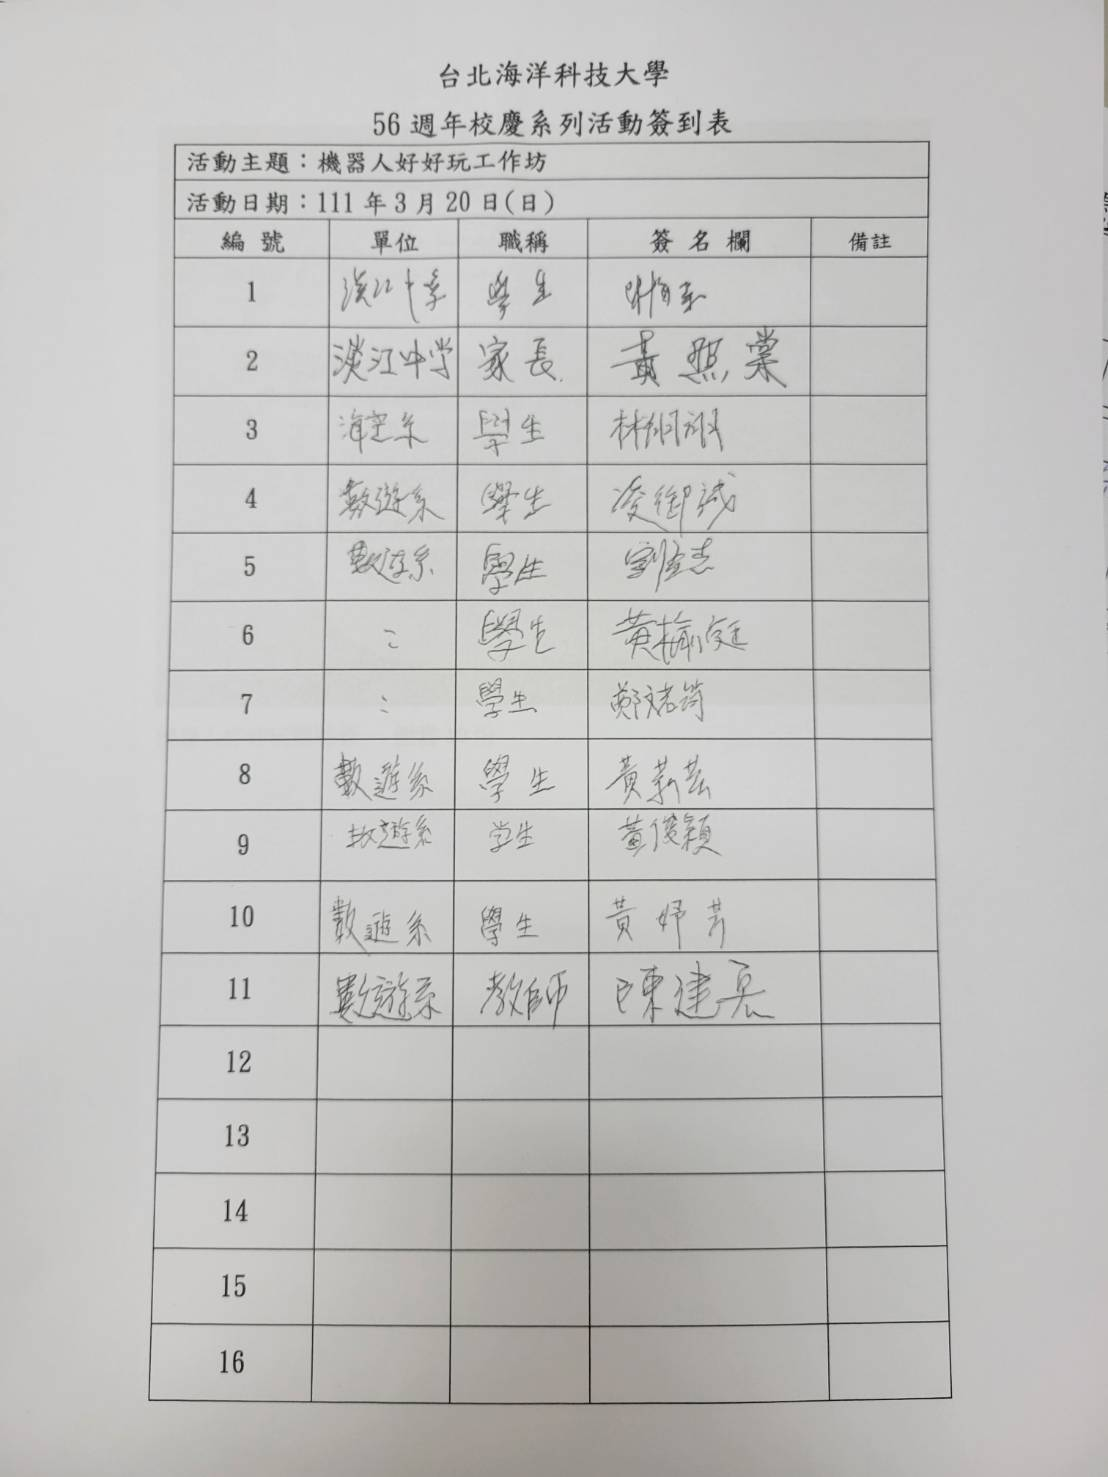 台北海洋科技大學
56 週年校慶系列活動簽到表
活動主題：機器人好好玩工作坊
活動日期：111 年 3 月 20 日(日)
編號 單位 職稱 簽名欄 備註
1 學生
2 淡江中学 家長 黃熙棠
3 海空系 學生 林
4 數遊系 學生 凌御誠
5 數遊系 學生 劉志
6 學生 黃榆庭
7 學生 鄭
8 數遊系 學生 黃莉芸
9 遊系 学生 黃俊穎
10 數遊系 學生 黃妤芳
11 數遊系 教師 陳建
12
13
14
15
16